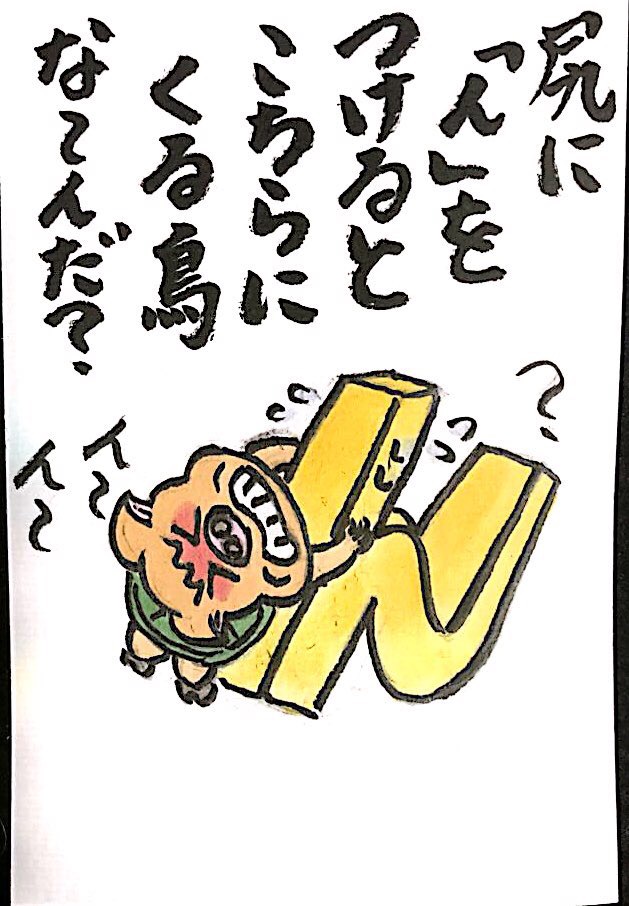 尻に
「ん」を
つけると
こちらに
くる鳥
なぁんだ?
?
んー
んー